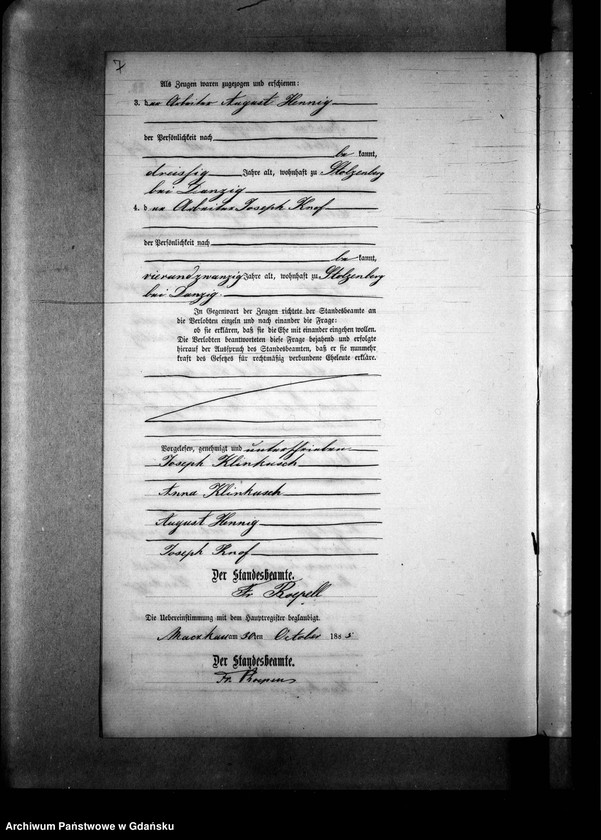 7
Als Zeugen waren zugezogen und erschienen:
3. der Arbeiter August Hennig
der Persönlichkeit nach
bekannt,
dreissig Jahre alt, wohnhaft zu Stolzenberg
bei Danzig
4. der Arbeiter Joseph Knof
der Persönlichkeit nach
bekannt,
vierundzwanzig Jahre alt, wohnhaft zu Stolzenberg
bei Danzig.
In Gegenwart der Zeugen richtete der Standesbeamte an
die Verlobten einzeln und nach einander die Frage:
ob sie erklären, daß sie die Ehe mit einander eingehen wollen.
Die Verlobten beantworteten diese Frage bejahend und erfolgte
hierauf der Ausspruch des Standesbeamten, daß er sie nunmehr
kraft des Gesetzes für rechtmäßig verbundene Eheleute erkläre.
Vorgelesen, genehmigt und unterschrieben
Joseph Klinkusch
Anna Klinkusch
August Hennig
Joseph Knof
Der Standesbeamte.
Fr. Roepell
Die Uebereinstimmung mit dem Hauptregister beglaubigt.
Maczkau am 30ten October 1885
Der Standesbeamte.
Fr.
Archiwum Państwowe w Gdańsku